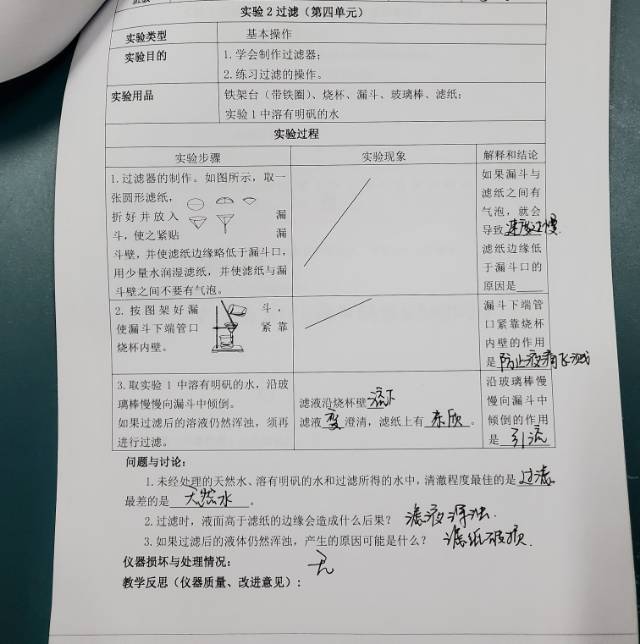 实验 2 过滤（第四单元）
实验类型 基本操作
实验目的 1.学会制作过滤器；
2.练习过滤的操作。
实验用品 铁架台（带铁圈）、烧杯、漏斗、玻璃棒、滤纸；
实验 1 中溶有明矾的水
实验过程
实验步骤 实验现象 解释和结论
1.过滤器的制作。如图所示，取一
张圆形滤纸，
折好并放入 漏
斗，使之紧贴 漏
斗壁，并使滤纸边缘略低于漏斗口，
用少量水润湿滤纸，并使滤纸与漏
斗壁之间不要有气泡。
如果漏斗与
滤纸之间有
气泡，就会
导致速度过慢
滤纸边缘低
于漏斗口的
原因是
2. 按图架好漏 斗，
使漏斗下端管口 紧靠
烧杯内壁。
漏斗下端管
口紧靠烧杯
内壁的作用
是防止液滴飞溅
3.取实验 1 中溶有明矾的水，沿玻
璃棒慢慢向漏斗中倾倒。
如果过滤后的溶液仍然浑浊，须再
进行过滤。
滤液沿烧杯壁流下
滤液变澄清，滤纸上有
沿玻璃棒慢
慢向漏斗中
倾倒的作用
是引流
问题与讨论：
1.未经处理的天然水、溶有明矾的水和过滤所得的水中，清澈程度最佳的是过滤
最差的是天然水。
2.过滤时，液面高于滤纸的边缘会造成什么后果？滤液浑浊.
3.如果过滤后的液体仍然浑浊，产生的原因可能是什么？滤纸破损.
仪器损坏与处理情况：无
教学反思（仪器质量、改进意见）：